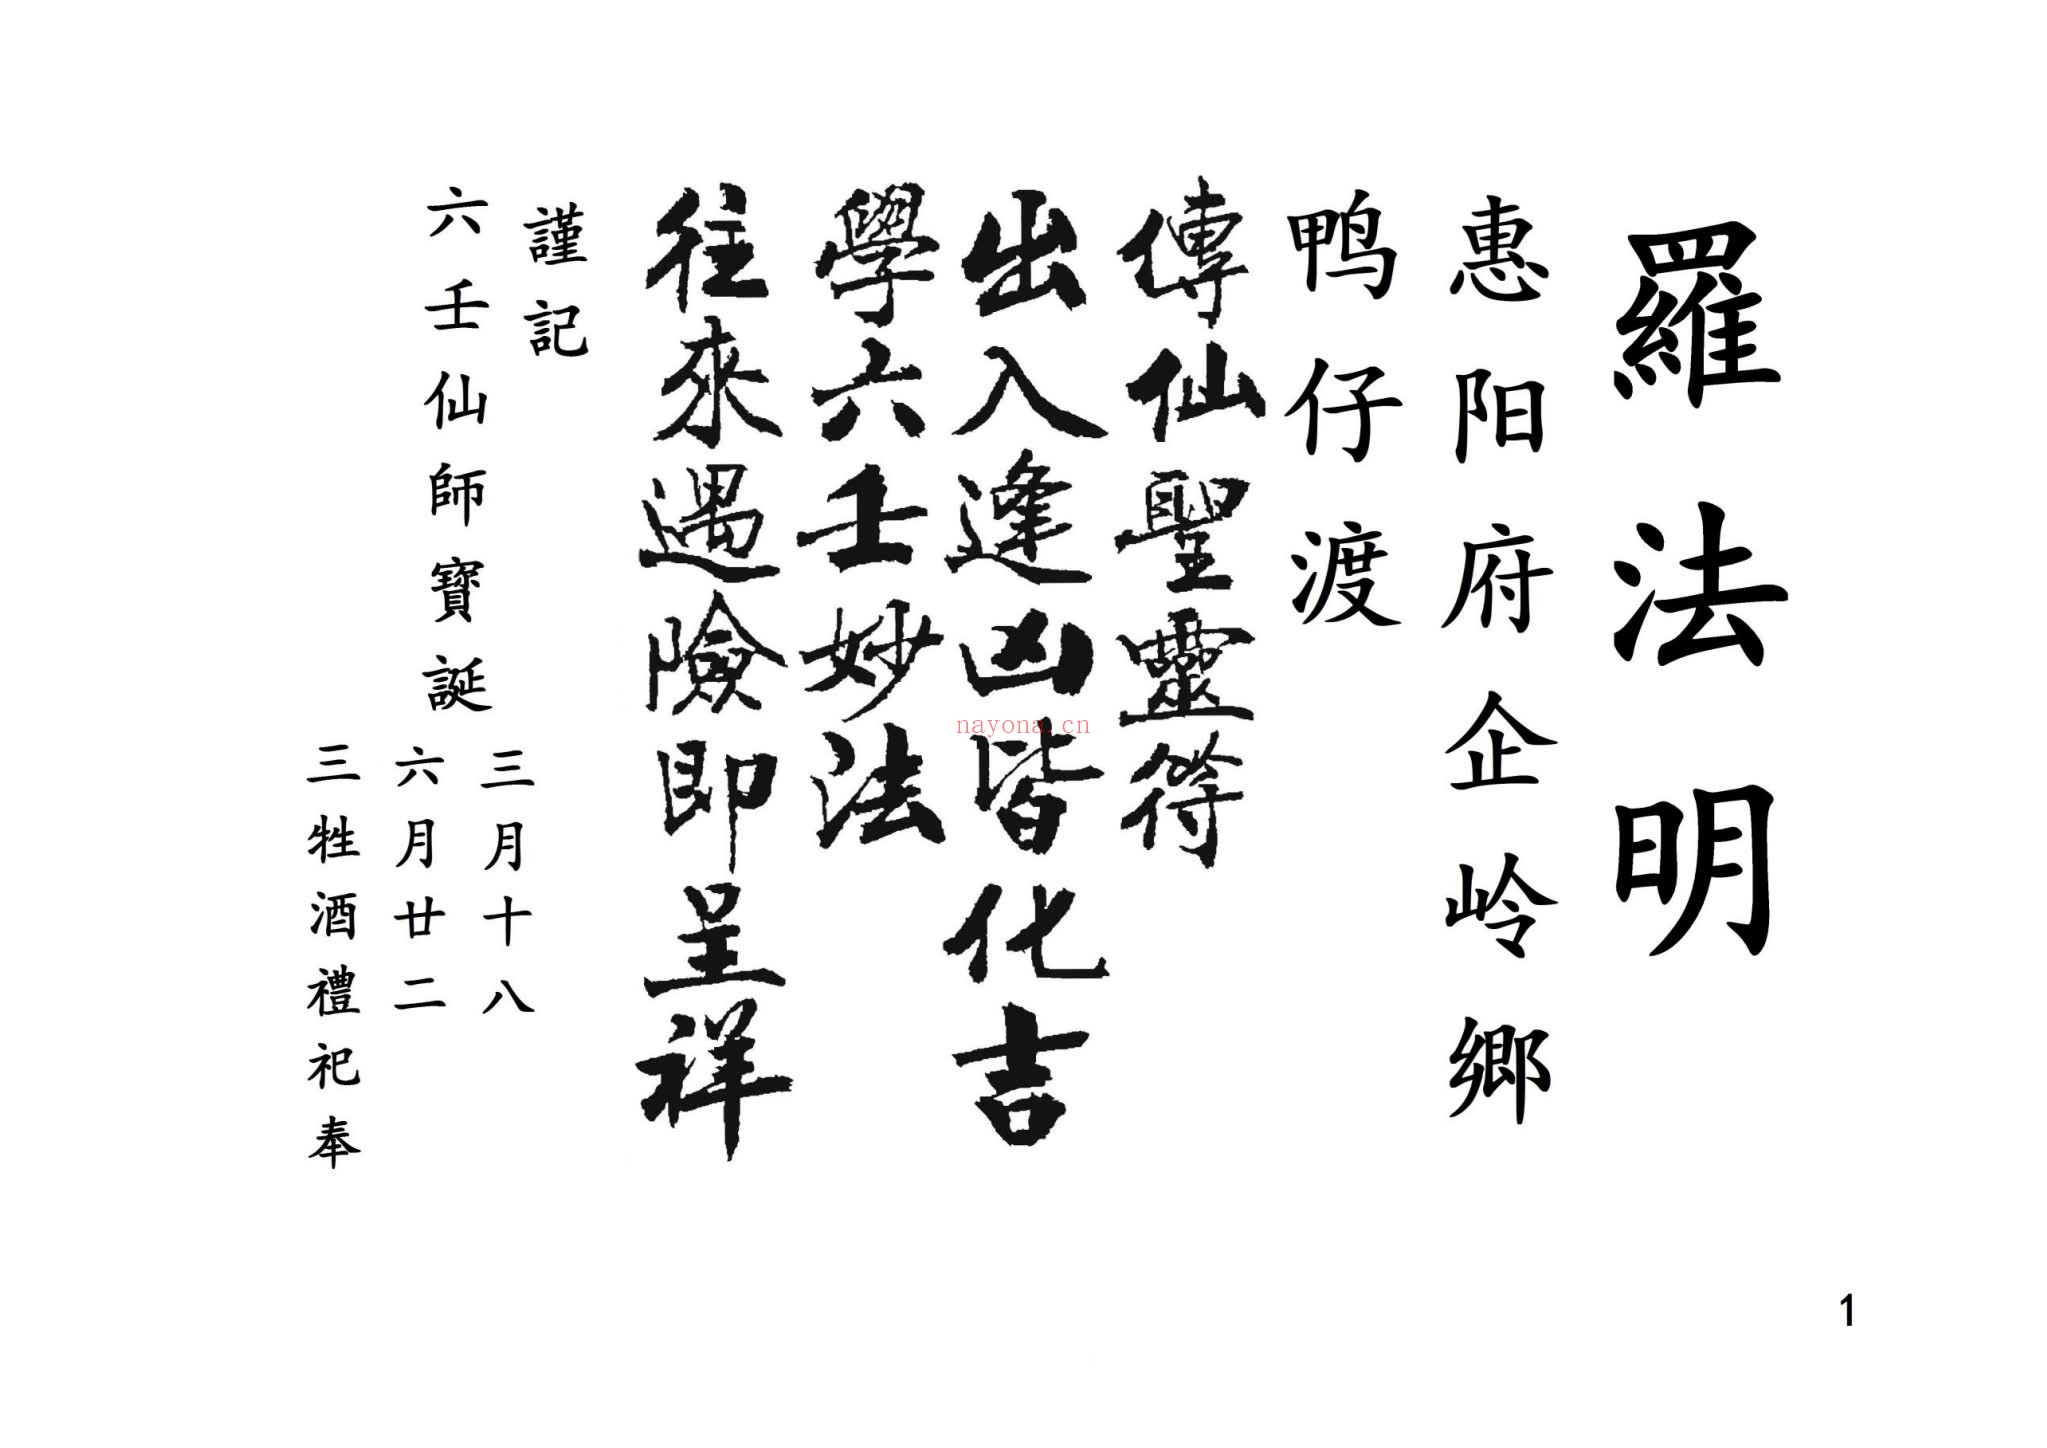 羅法明
惠阳府企岭鄉
鸭仔渡
傳仙聖靈符
出入逢凶皆化吉
學六壬妙法
往來遇險即呈祥
謹記
六壬仙師寶誕
三月十八
六月廿二
三牲酒禮祀奉
nayona.cn
1